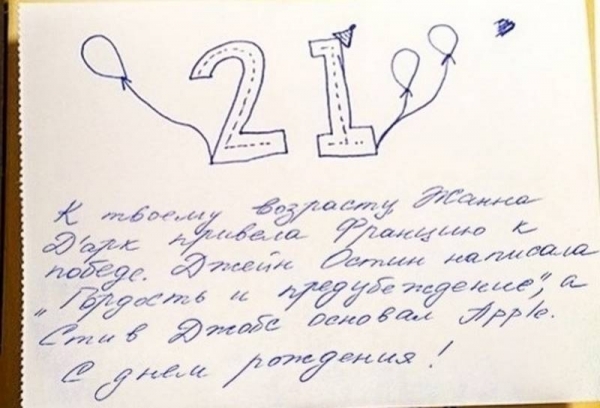 21
К твоему возрасту Жанна
Д'арк привела Францию к
победе. Джейн Остин написала
„Гордость и предубеждение", а
Стив Джобс основал Apple.
С днем рождения!